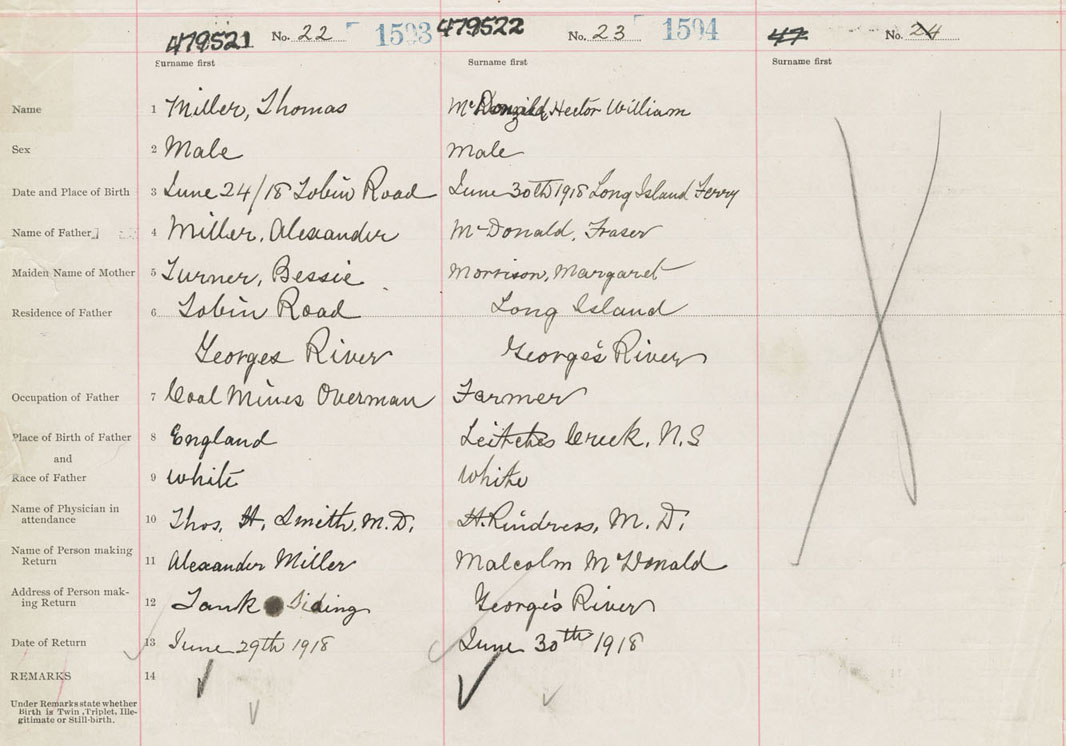 479521 No. 22 1593 479522 No. 23 1594 47 No. 24
Surname first Surname first Surname first
Name 1 Miller, Thomas McDonald, Hector William
Sex 2 Male Male
Date and Place of Birth 3 June 24/18 Tobin Road June 30th 1918 Long Island Ferry
Name of Father 4 Miller, Alexander McDonald, Fraser
Maiden Name of Mother 5 Turner, Bessie Morrison, Margaret
Residence of Father 6 Tobin Road Long Island
Georges River George's River
Occupation of Father 7 Coal Mines Overman Farmer
Place of Birth of Father 8 England Leitches Creek, N.S
and
Race of Father 9 White White
Name of Physician in
attendance 10 Thos. H. Smith, M.D. H. Rindress, M.D.
Name of Person making
Return 11 Alexander Miller Malcolm McDonald
Address of Person mak-
ing Return 12 Tank Siding George's River
Date of Return 13 June 29th 1918 June 30th 1918
REMARKS 14
Under Remarks state whether
Birth is Twin, Triplet, Ille-
gitimate or Still-birth.